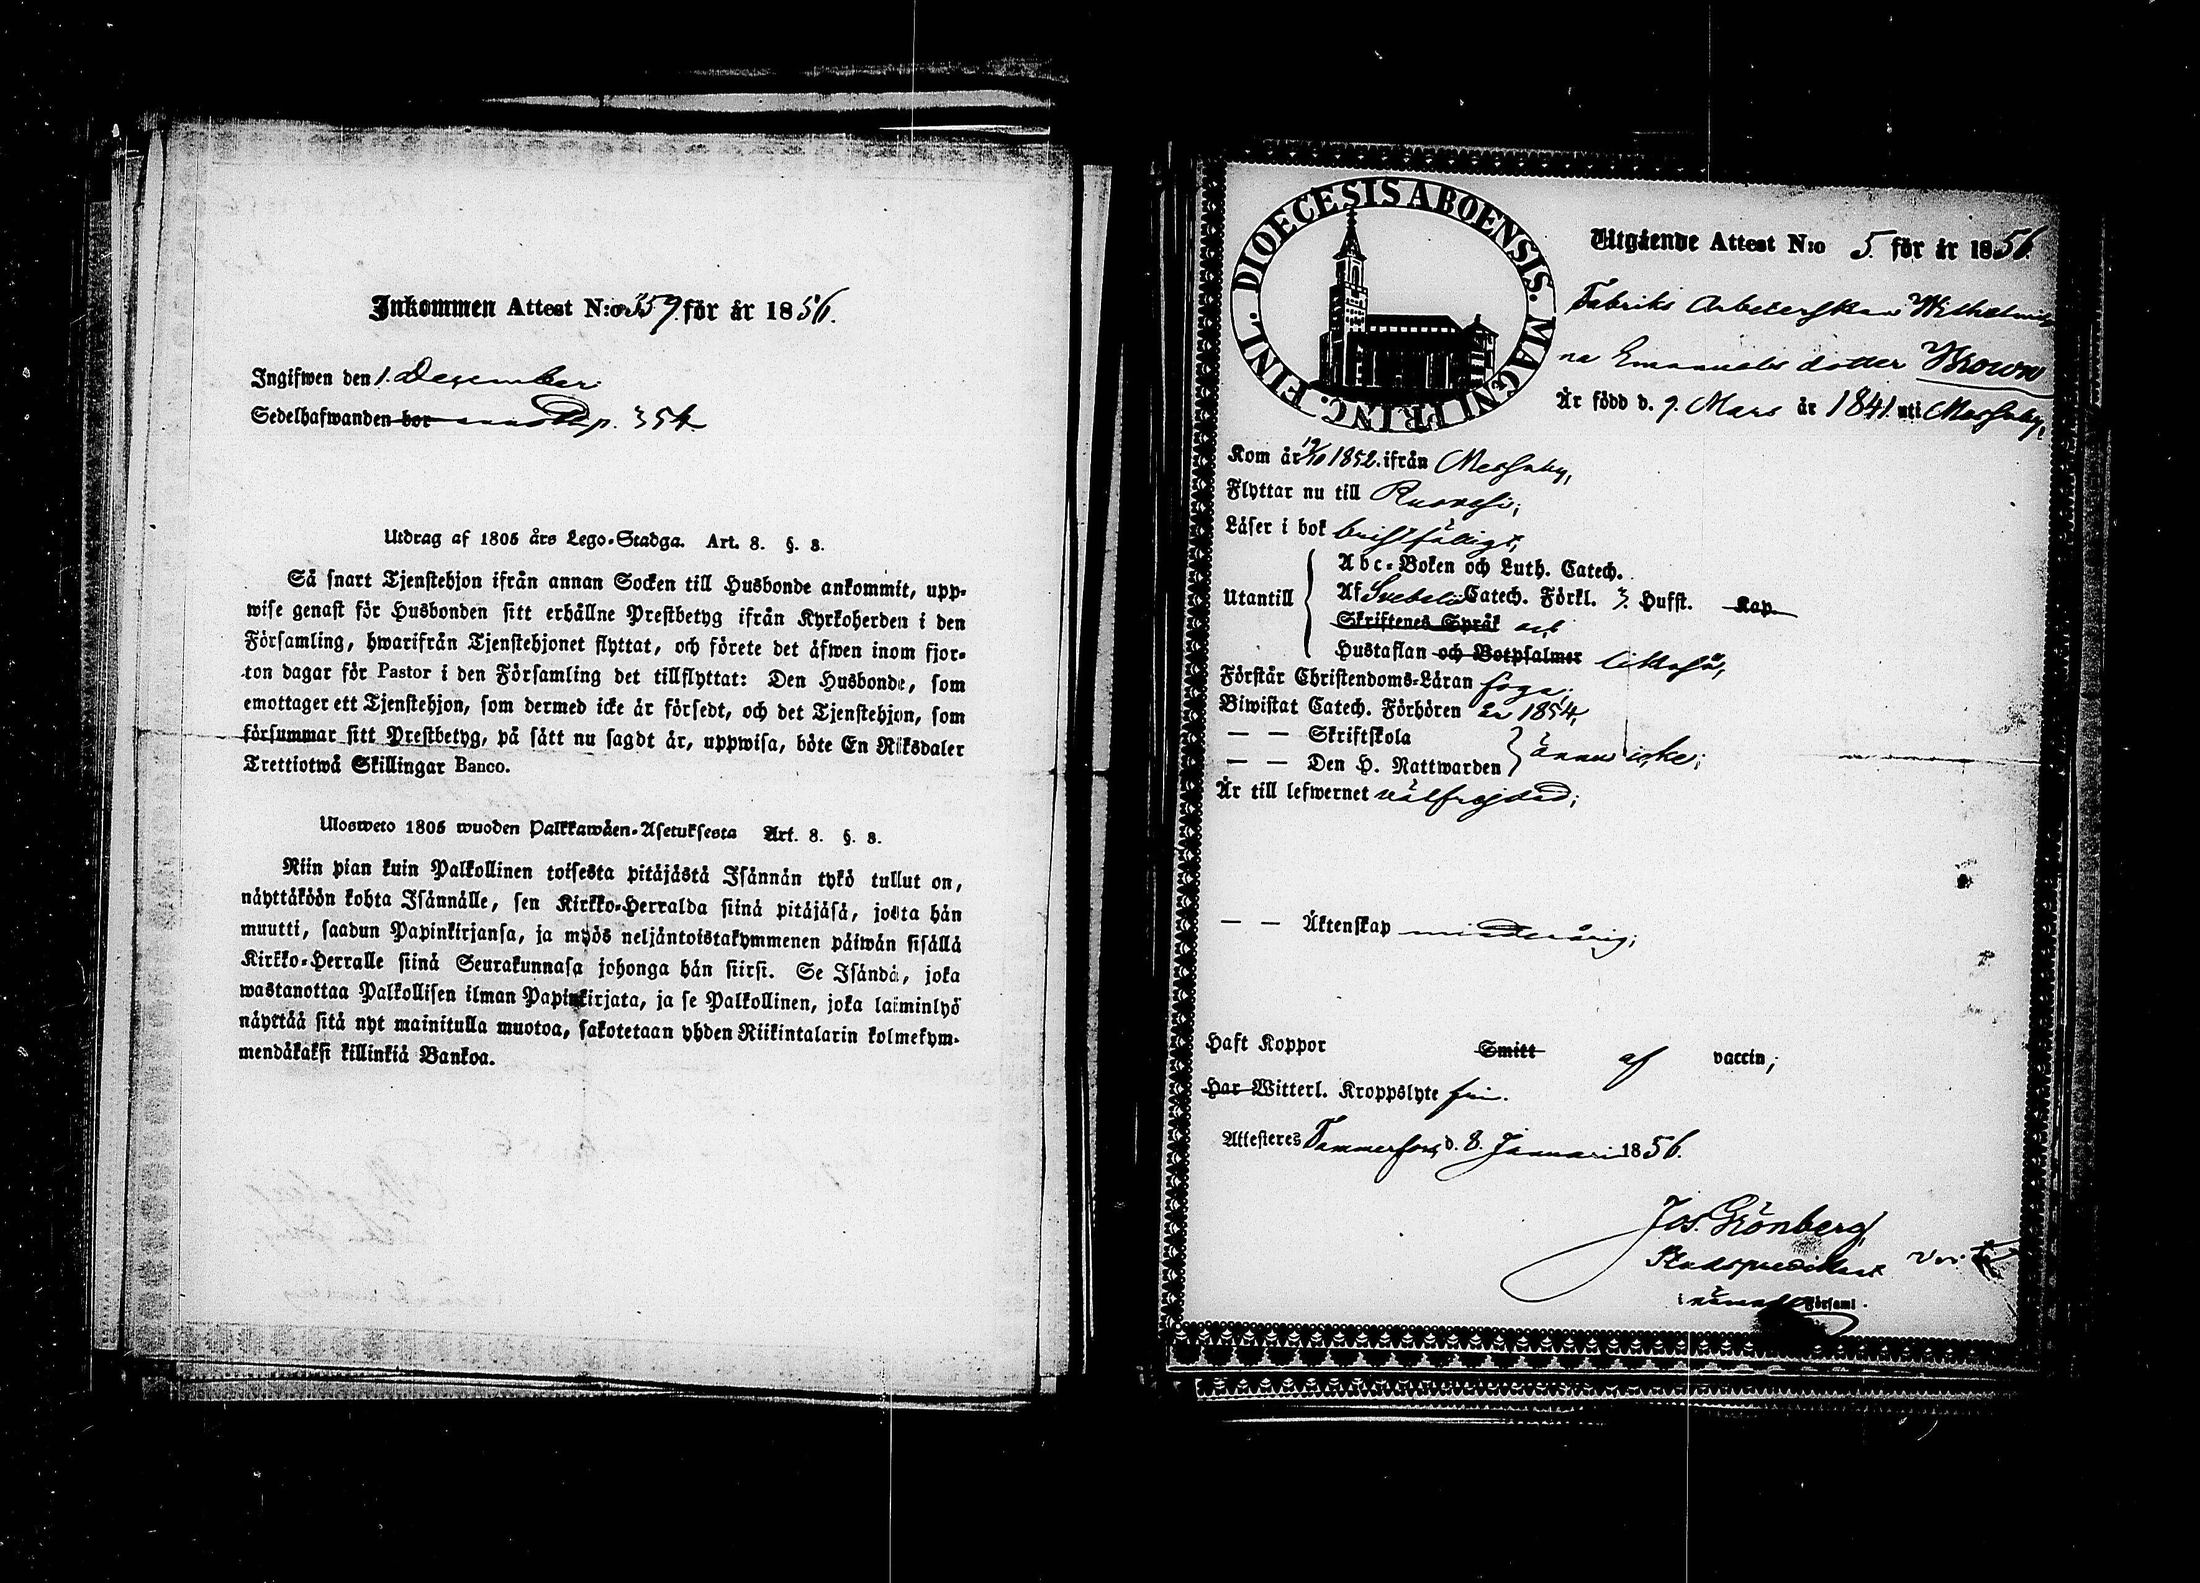 Inkommen Attest N:o 359 för år 1856.
Ingifwen den 1. December.
Sedelhafwanden bor p. 354.
Utdrag af 1805 års Lego-Stadga. Art. 8. §. 8.
Så snart Tjenstehjon ifrån annan Socken till Husbonde ankommit, upp-
wise genast för Husbonden sitt erhållne Prestbetyg ifrån Kyrkoherden i den
Församling, hwarifrån Tjenstehjonet flyttat, och förete det äfwen inom fjor-
ton dagar för Pastor i den Församling det tillflyttat: Den Husbonde, som
emottager ett Tjenstehjon, som dermed icke är försedt, och det Tjenstehjon, som
försummar sitt Prestbetyg, på sätt nu sagdt är, uppwisa, böte En Riksdaler
Trettiotwå Skillingar Banco.
Ulosweto 1805 wuoden Palkkawäen-Asetuksesta Art. 8. §. 8.
Niin pian kuin Palkollinen toisesta pitäjästä Isännän tykö tullut on,
näyttäköön kohta Isännälle, sen Kirkko-Herralda siinä pitäjäsä, josta hän
muutti, saadun Papinkirjansa, ja myös neljäntoistakymmenen päiwän sisällä
Kirkko-Herralle siinä Seurakunnasa johonga hän siirsi. Se Isändä, joka
wastanottaa Palkollisen ilman Papinkirjata, ja se Palkollinen, joka laiminlyö
näyttää sitä nyt mainitulla muotoa, sakotetaan yhden Riikintalarin kolmekym-
mendäkaksi killinkiä Bankoa.
DIOECESIS ABOENSIS. MAGNI PRINC. FINL.
Utgående Attest N:o 5. för år 1856.
Fabriks Arbeterskan Wilhelmi
na Emanuels dotter Brown
Är född d. 9. Mars år 1841. uti Messuby,
Kom år 19/10 1852. ifrån Messuby,
Flyttar nu till Ruovesi;
Läser i bok bristfälligt,
Utantill
Abc-Boken och Luth. Catech.
Af Svebelii Catech. Förkl. 3. Hufst. Kap
Skriftenes Språk och
Hustaflan och Botpsalmer likaså,
Förstår Christendoms-Läran föga;
Biwistat Catech. Förhören år 1854,
— — Skriftskola
— — Den H. Nattwarden ännu icke;
Är till lefwernet välfrejdad;
— — Äktenskap minderårig;
Haft Koppor Smitt af vaccin;
Har Witterl. Kroppslyte fri.
Attesteres Tammerfors, d. 8. Januari 1856.
Jos. Grönberg,
Stadspredikant
i Församl.